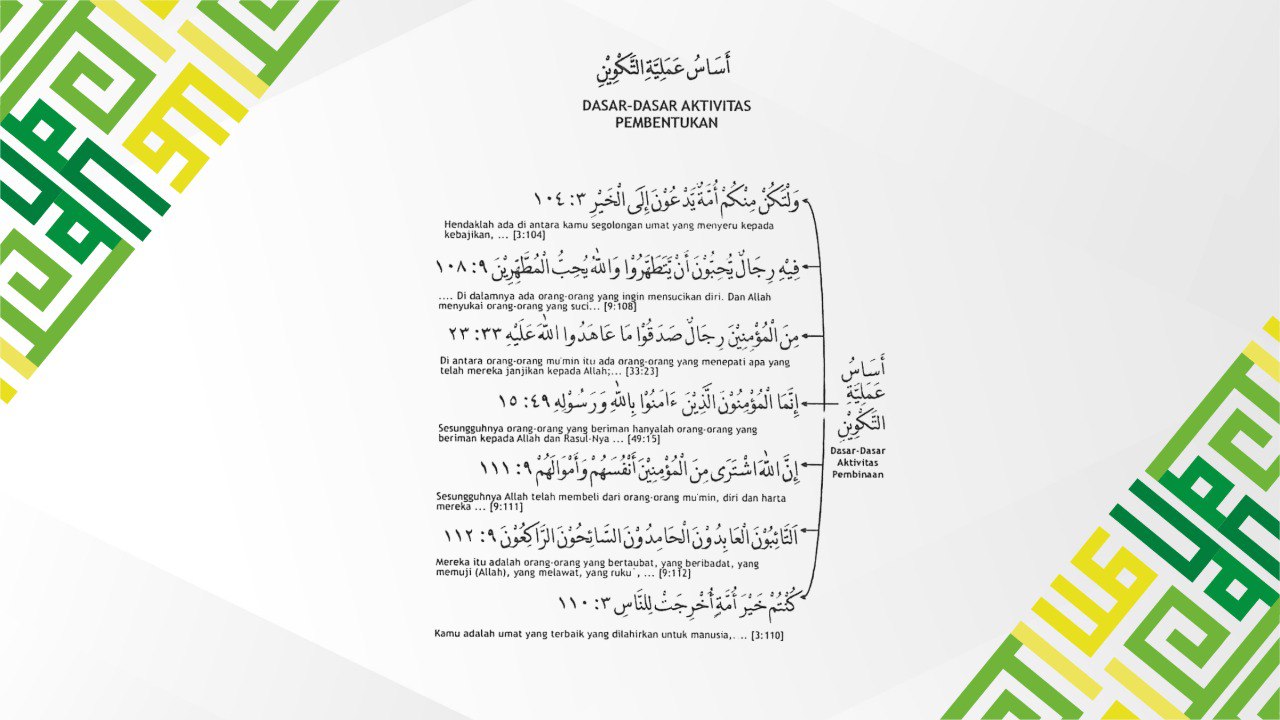 أَسَاسُ عَمَلِيَّةِ التَّكْوِيْنِ
DASAR-DASAR AKTIVITAS
PEMBENTUKAN
وَلْتَكُنْ مِنْكُمْ أُمَّةٌ يَدْعُوْنَ إِلَى الْخَيْرِ ٣: ١٠٤
Hendaklah ada di antara kamu segolongan umat yang menyeru kepada
kebajikan, ... [3:104]
فِيْهِ رِجَالٌ يُحِبُّوْنَ أَنْ يَتَطَهَّرُوْا وَاللّٰهُ يُحِبُّ الْمُطَّهِّرِيْنَ ٩: ١٠٨
.... Di dalamnya ada orang-orang yang ingin mensucikan diri. Dan Allah
menyukai orang-orang yang suci... [9:108]
مِنَ الْمُؤْمِنِيْنَ رِجَالٌ صَدَقُوْا مَا عَاهَدُوا اللّٰهَ عَلَيْهِ ٣٣: ٢٣
Di antara orang-orang mu'min itu ada orang-orang yang menepati apa yang
telah mereka janjikan kepada Allah;... [33:23]
إِنَّمَا الْمُؤْمِنُوْنَ الَّذِيْنَ ءَامَنُوْا بِاللّٰهِ وَرَسُوْلِهِ ٤٩: ١٥
Sesungguhnya orang-orang yang beriman hanyalah orang-orang yang
beriman kepada Allah dan Rasul-Nya ... [49:15]
إِنَّ اللّٰهَ اشْتَرَى مِنَ الْمُؤْمِنِيْنَ أَنْفُسَهُمْ وَأَمْوَالَهُمْ ٩: ١١١
Sesungguhnya Allah telah membeli dari orang-orang mu'min, diri dan harta
mereka ... [9:111]
اَلتَّائِبُوْنَ الْعَابِدُوْنَ الْحَامِدُوْنَ السَّائِحُوْنَ الرَّاكِعُوْنَ ٩: ١١٢
Mereka itu adalah orang-orang yang bertaubat, yang beribadat, yang
memuji (Allah), yang melawat, yang ruku', ... [9:112]
كُنْتُمْ خَيْرَ أُمَّةٍ أُخْرِجَتْ لِلنَّاسِ ٣: ١١٠
Kamu adalah umat yang terbaik yang dilahirkan untuk manusia,... [3:110]
أَسَاسُ
عَمَلِيَّةِ
التَّكْوِيْنِ
Dasar-Dasar
Aktivitas
Pembinaan